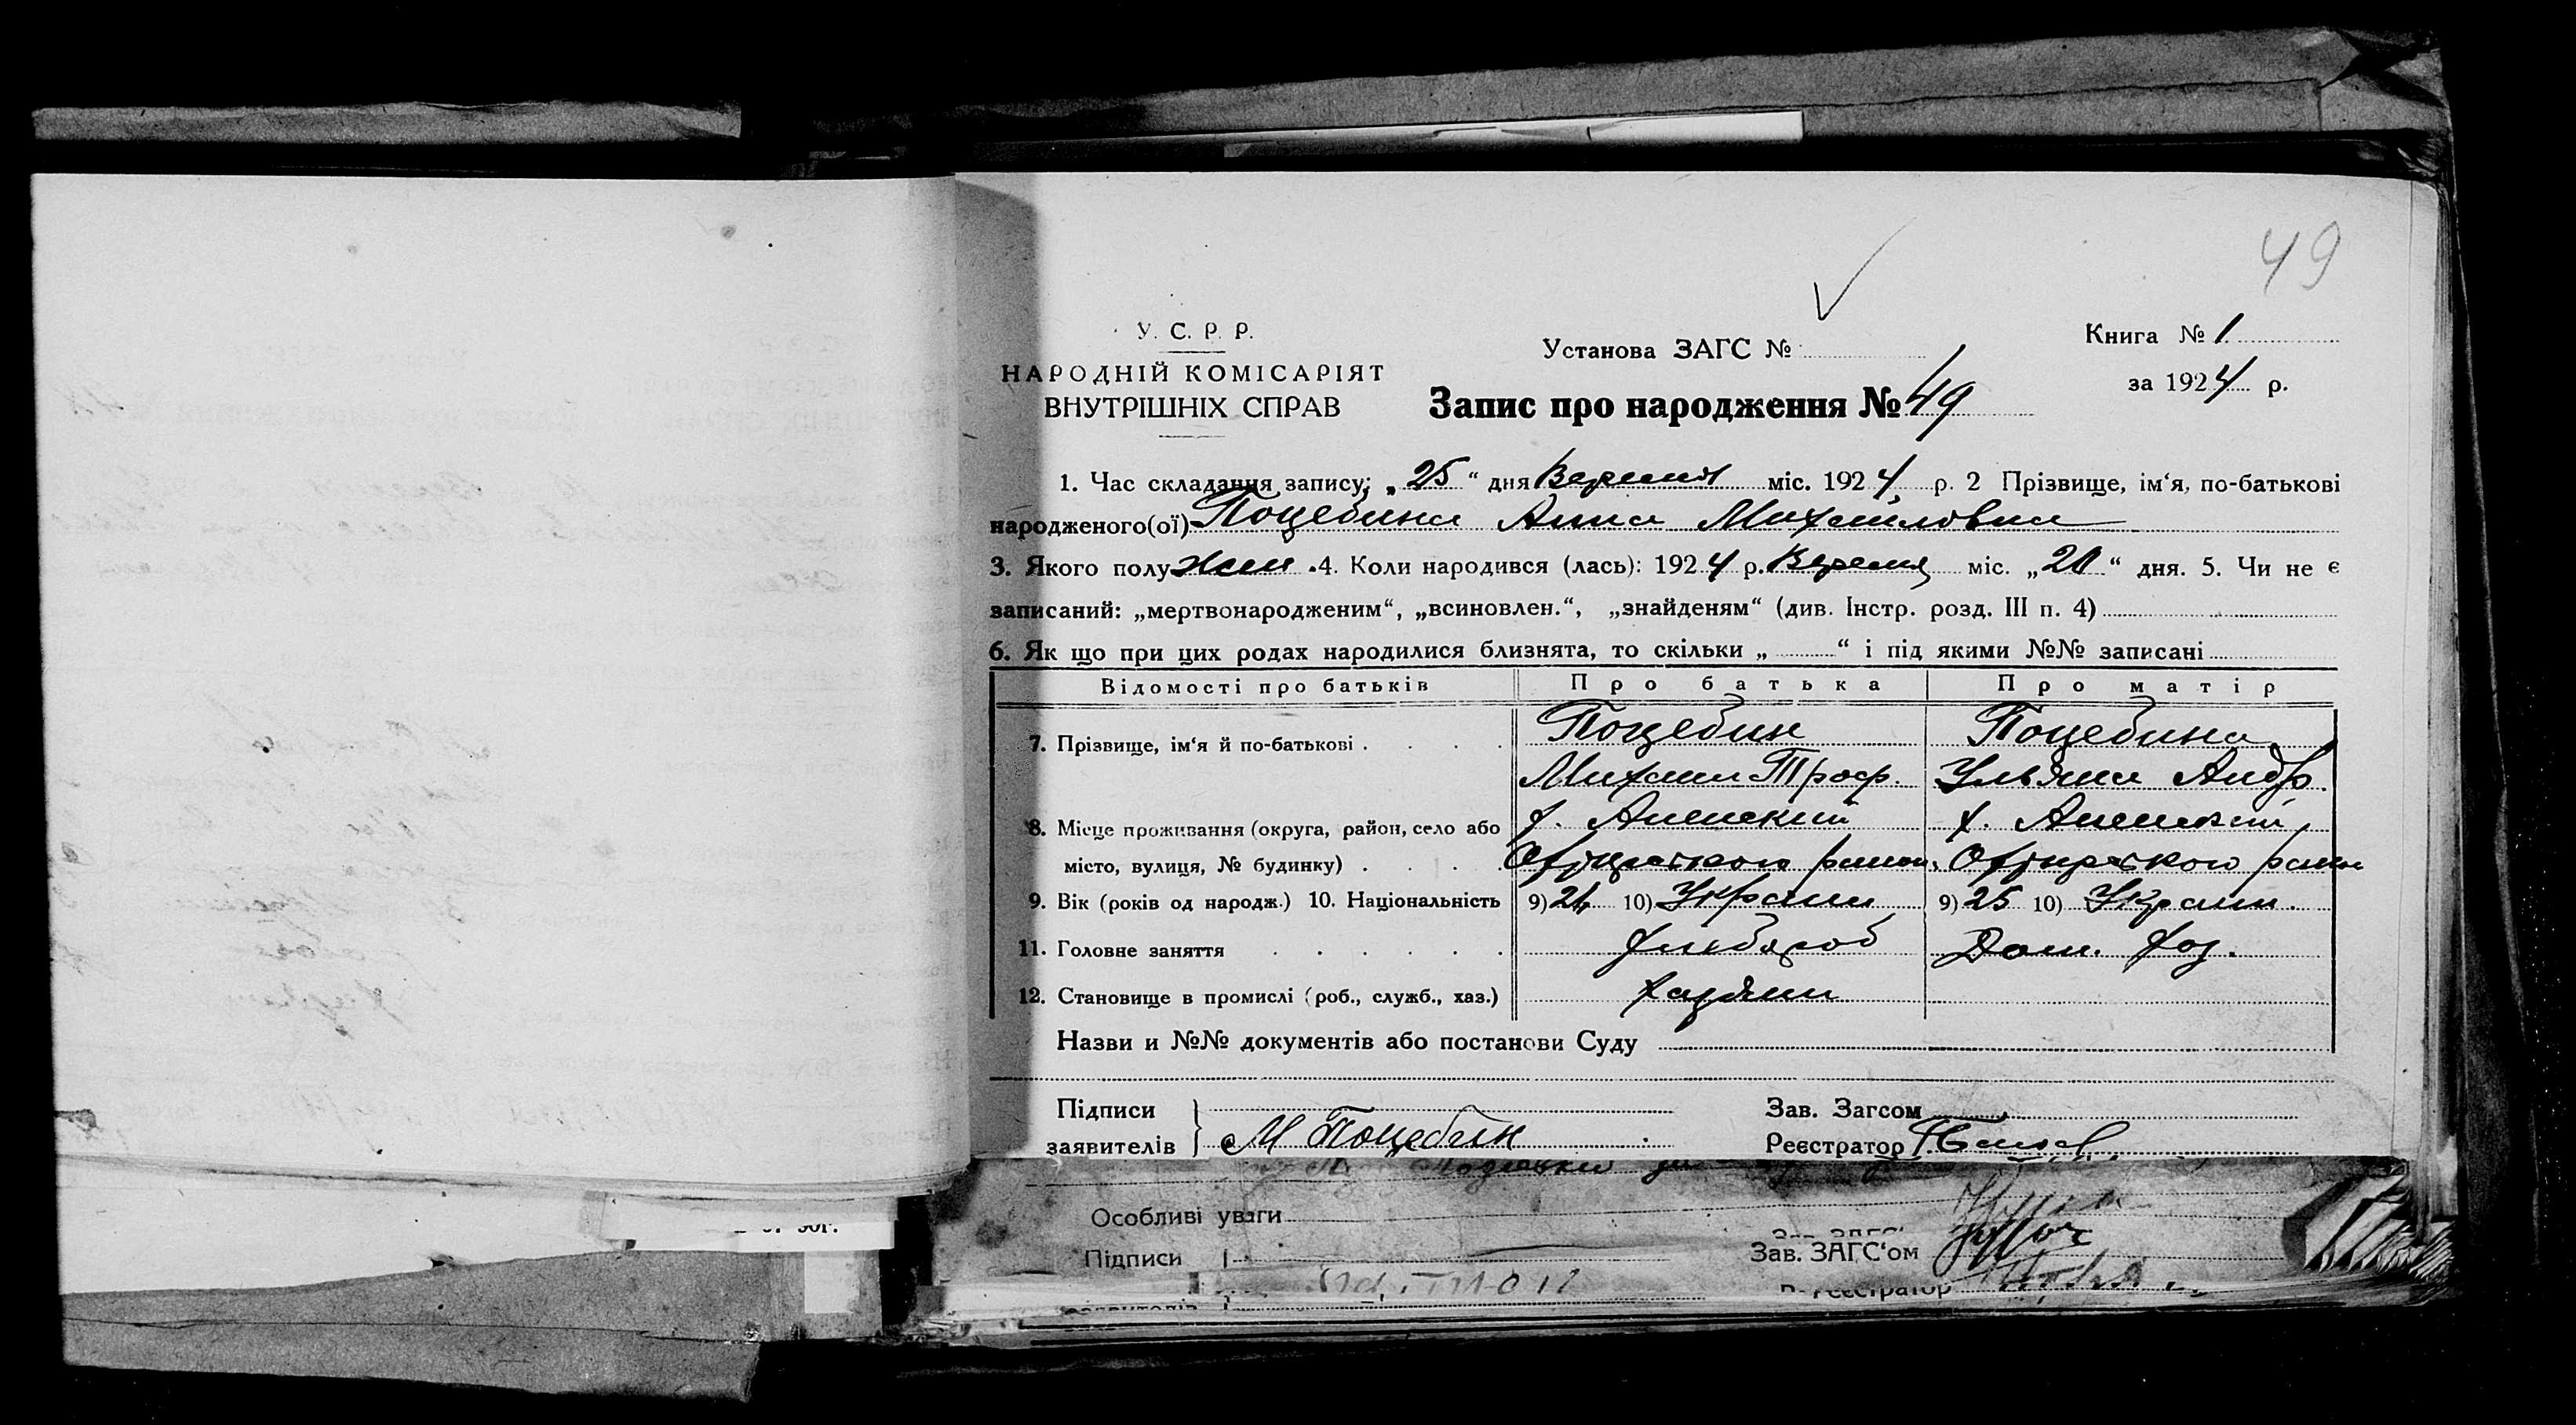 49
У. С. Р. Р.
НАРОДНІЙ КОМІСАРІЯТ
ВНУТРІШНІХ СПРАВ
Установа ЗАГС №
Запис про народження № 49
Книга № 1
за 1924 р.
1. Час складання запису: „25“ дня Вересня міс. 1924 р. 2 Прізвище, ім‘я, по-батькові
народженого(ої) Поцебина Анна Михайловна
3. Якого полу жен. 4. Коли народився (лась): 1924 р. Вересня міс. „20“ дня. 5. Чи не є
записаний: „мертвонародженим“, „всиновлен.“, „знайденям“ (див. Інстр. розд. III п. 4)
6. Як що при цих родах народилися близнята, то скільки „ “ і під якими №№ записані
Відомості про батьків Про батька Про матір
7. Прізвище, ім‘я й по-батькові Поцебин Поцебина
Михаил Троф. Ульяна Андр.
8. Місце проживання (округа, район, село або х.
місто, вулиця, № будинку)
9. Вік (років од народж.) 10. Національність 9) 24 10) Украин 9) 25 10) Украин.
11. Головне заняття хлібороб Дом. хоз.
12. Становище в промислі (роб., служб., хаз.) хазяин
Назви и №№ документів або постанови Суду
Підписи Зав. Загсом
заявителів М Поцебин Реєстратор
Особливі уваги
Підписи Зав. ЗАГС‘ом
Реєстратор